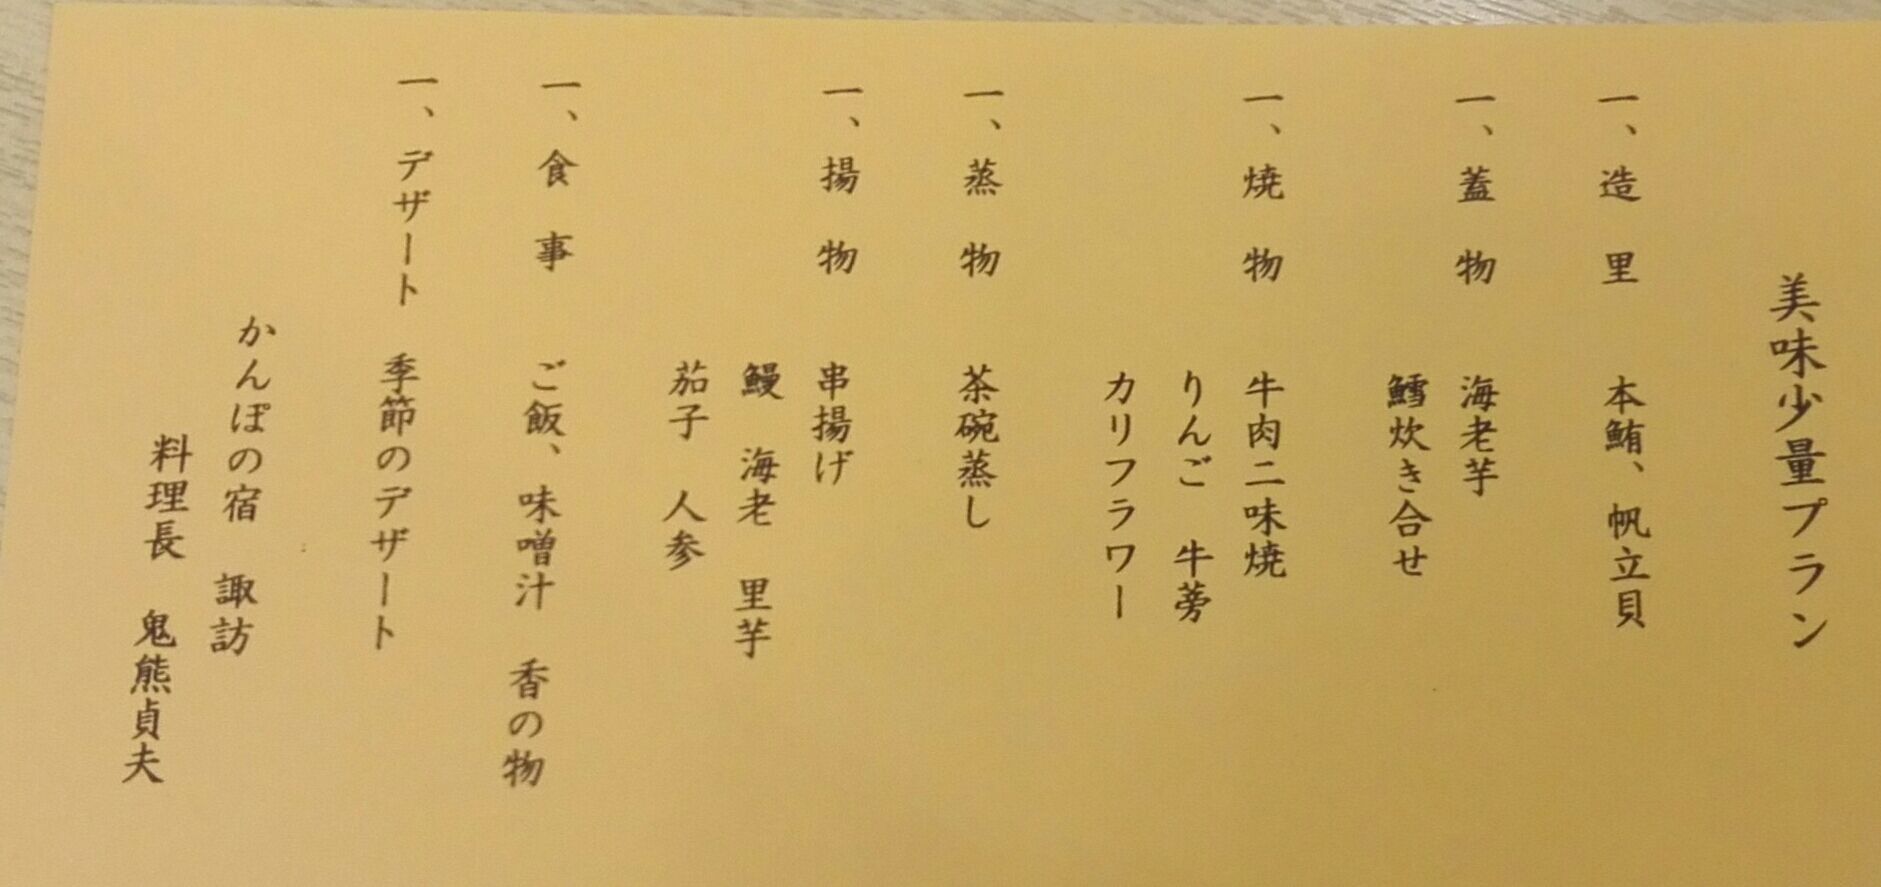 美味少量プラン
一、造里 本鮪、帆立貝
一、蓋物 海老芋
鱈炊き合せ
一、焼物 牛肉二味焼
りんご 牛蒡
カリフラワー
一、蒸物 茶碗蒸し
一、揚物 串揚げ
鰻 海老 里芋
茄子 人参
一、食事 ご飯、味噌汁 香の物
一、デザート 季節のデザート
かんぽの宿 諏訪
料理長 鬼熊貞夫